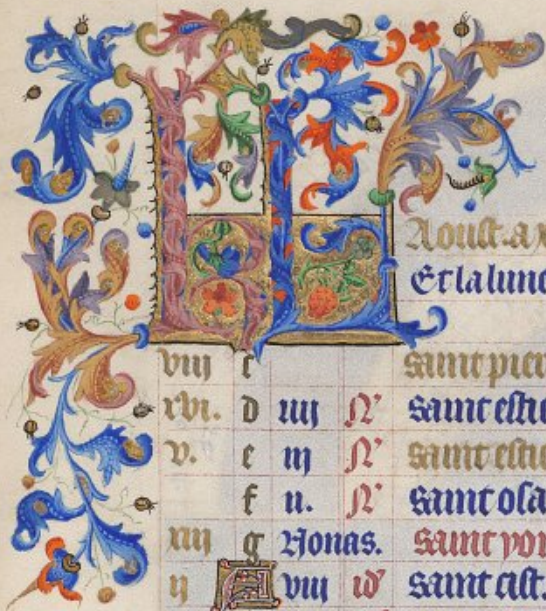 KL
Aoust. a. x
Et la lune
viii c saint pier
xvi. D iiij N' saint estie
v. e iij N' saint estie
f ii. N' saint osa
xiii g Nonas. saint yo
ij A viij id' saint cist.